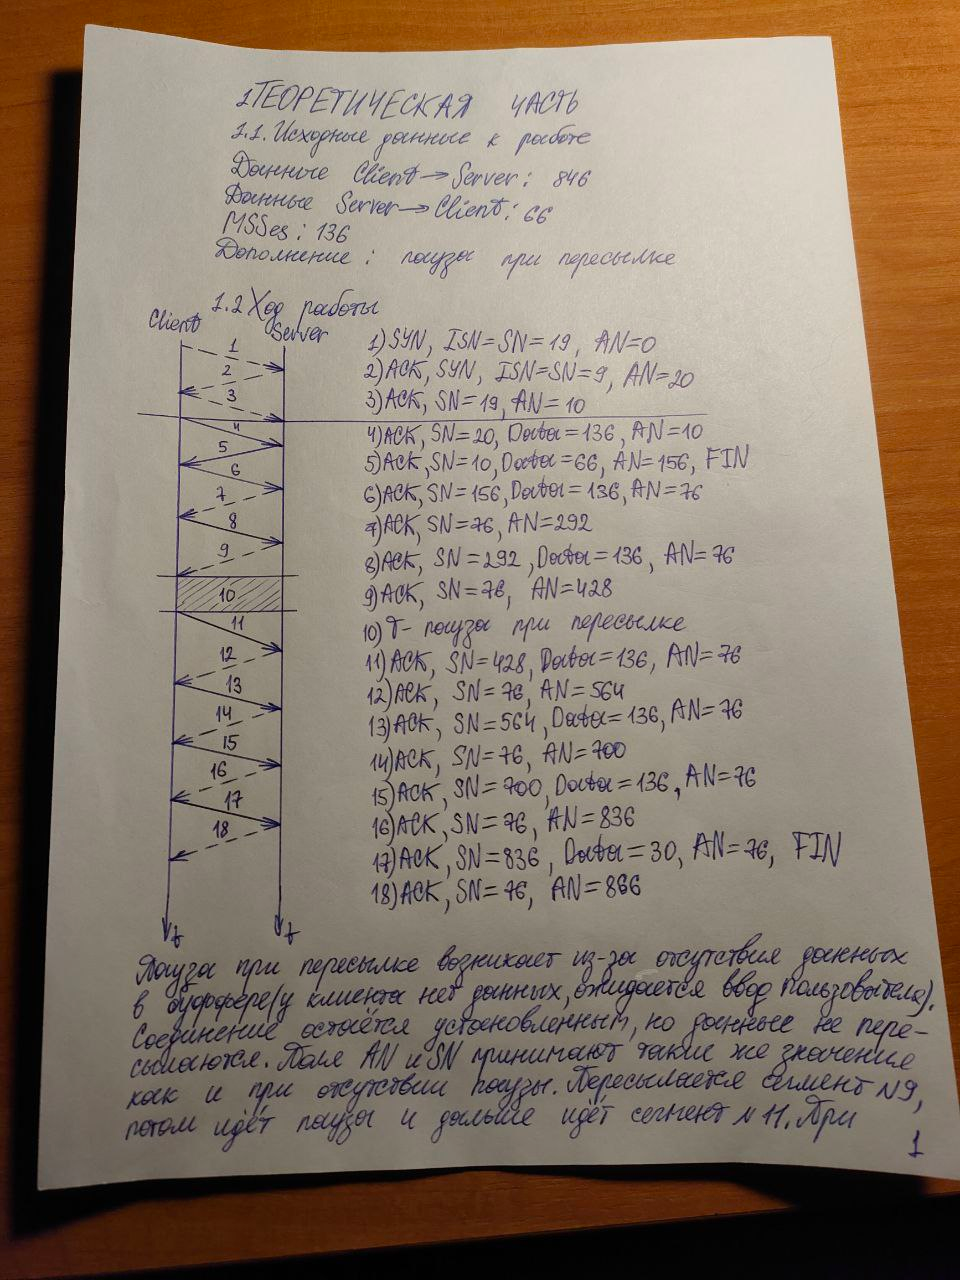 1 ТЕОРЕТИЧЕСКАЯ ЧАСТЬ
1.1. Исходные данные к работе
Данные Client → Server: 846
Данные Server → Client: 66
MSSes: 136
Дополнение: пауза при пересылке
1.2 Ход работы
Client Server
1
2
3
4
5
6
7
8
9
10
11
12
13
14
15
16
17
18
t t
1) SYN, ISN=SN=19, AN=0
2) ACK, SYN, ISN=SN=9, AN=20
3) ACK, SN=19, AN=10
4) ACK, SN=20, Data=136, AN=10
5) ACK, SN=10, Data=66, AN=156, FIN
6) ACK, SN=156, Data=136, AN=76
7) ACK, SN=76, AN=292
8) ACK, SN=292, Data=136, AN=76
9) ACK, SN=76, AN=428
10) T- пауза при пересылке
11) ACK, SN=428, Data=136, AN=76
12) ACK, SN=76, AN=564
13) ACK, SN=564, Data=136, AN=76
14) ACK, SN=76, AN=700
15) ACK, SN=700, Data=136, AN=76
16) ACK, SN=76, AN=836
17) ACK, SN=836, Data=30, AN=76, FIN
18) ACK, SN=76, AN=866
Пауза при пересылке возникает из-за отсутствия данных
в буфере(у клиента нет данных, ожидается ввод пользователя).
Соединение остаётся установленным, но данные не пере-
сылаются. Поля AN и SN принимают такие же значения
как и при отсутствии паузы. Пересылается сегмент N9,
потом идёт пауза и дальше идёт сегмент N 11. При
1